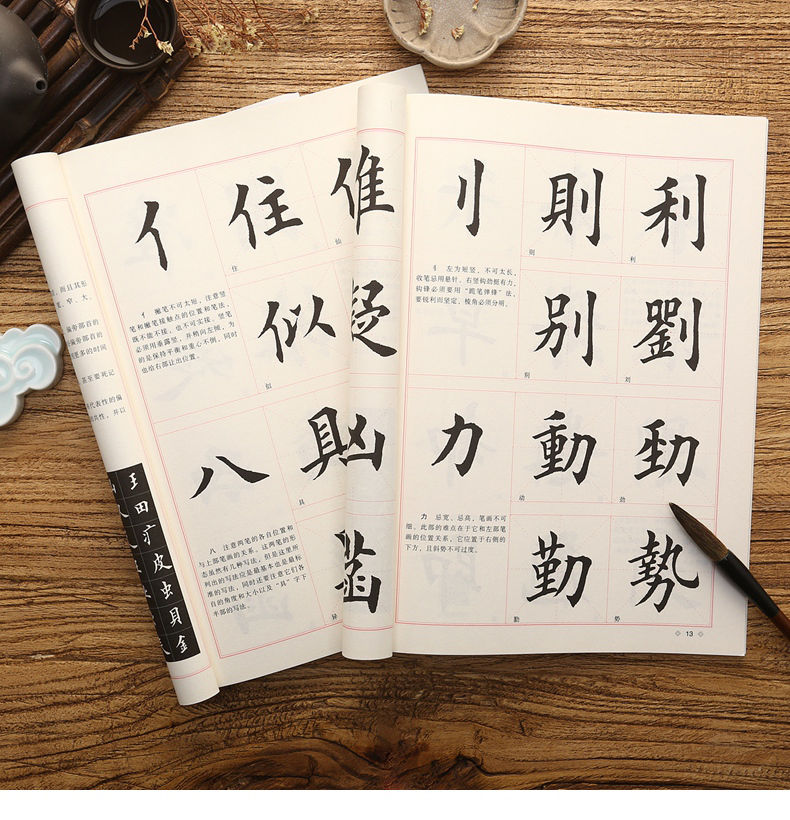 亻
住
住
仙
似
似
亻 撇笔不可太短，注意竖
笔和撇笔接触点的位置和笔法，
既不能不接，也不可实接。竖笔
必须用垂露竖，并稍向左倾，为
的是保持平衡和重心不倒，同时
也给右部让出位置。
八
具
八 注意两笔的各自位置和
与上部笔画的关系。这两笔的形
态虽然有几种写法，但是这里所
列出的写法应是最基本也是最标
准的写法。同时还要注意它们各
自的角度和大小以及“具”字下
半部的写法。
而且其形
宽、窄、大、
偏旁部首的
更多的时间
甚至要死记
代表性的偏
同共性，并以
王
田
疒
皮
虫
貝
金
刂
則
则
利
利
刂 左为短竖，不可太长，
收笔忌用悬针。右竖钩劲挺有力，
钩锋必须要用“跪笔弹锋”法，
要锐利而坚定，棱角必须分明。
别
别
劉
刘
力
動
动
勁
劲
力 忌宽、忌高，笔画不可
细。此部的难点在于它和左部笔
画的位置关系，它应置于右侧的
下方，且斜势不可过度。
勤
勤
勢
势
13